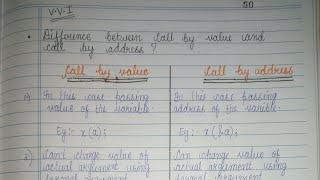 V.V.I
50
• Difference between Call by value and
call by address ?
Call by value
Call by address
1) In this case passing
value of the variable.
Eg:- x(a);
In this case passing
address of the variable.
Eg:- x(&a);
2) Can't change value of
actual argument using
formal argument
Can change value of
actual argument using
formal argument